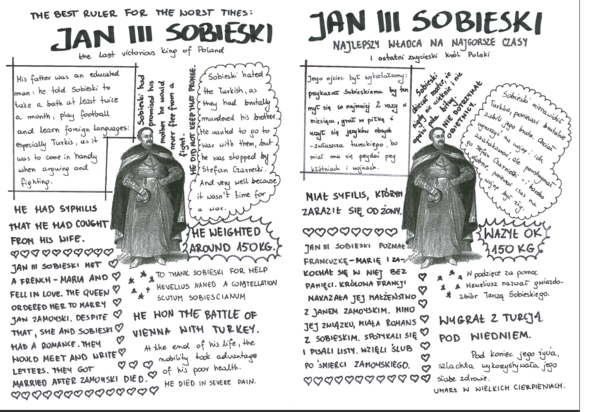 THE BEST RULER FOR THE WORST TIMES:
JAN III SOBIESKI
the last victorious king of Poland
His father was an educated
man: he told Sobieski to
take a bath at least twice
a month, play football
and learn foreign languages:
especially Turkis, as it
was to come in handy
when arguing and
fighting.
Sobieski had
promised his
mother he would
never flee from a
fight.
HE DID NOT KEEP THAT PROMISE.
Sobieski hated
the Turkish, as
they had brutally
murdered his brother.
He wanted to go to
war with them, but
he was stopped by
Stefan Czarnecki.
And very well because
it wasn't time for
a war.
HE HAD SYPHILIS
THAT HE HAD COUGHT
FROM HIS WIFE.
HE WEIGHTED
AROUND 150 KG.
JAN III SOBIESKI MET
A FRENCH - MARIA AND
FELL IN LOVE. THE QUEEN
ORDERED HER TO MARRY
JAN ZAMOYSKI. DESPITE
THAT, SHE AND SOBIESKI
HAD A ROMANCE. THEY
WOULD MEET AND WRITE
LETTERS. THEY GOT
MARRIED AFTER ZAMOYSKI DIED.
TO THANK SOBIESKI FOR HELP
HEVELIUS NAMED A CONSTELLATION
SCUTUM SOBIESCIANUM
HE WON THE BATTLE OF
VIENNA WITH TURKEY.
At the end of his life, the
nobility took advantage
of his poor health.
HE DIED IN SEVERE PAIN.
JAN III SOBIESKI
NAJLEPSZY WŁADCA NA NAJGORSZE CZASY
i ostatni zwycięski król Polski
Jego ojciec był wykształcony:
przykazał Sobieskiemu by ten
mył się co najmniej 2 razy w
miesiącu, grał w piłkę i
uczył się języków obcych
- zwłaszcza tureckiego, bo
miał mu się przydać przy
kłótniach i wojnach.
Sobieski
matce, że
nigdy nie ucieknie z
pola
NIE DOTRZYMAŁ
OBIETNICY.
Sobieski nienawidził
Turków, ponieważ brutalnie
zabili jego brata. Chciał
wyruszyć na wojnę i ich
zaatakować, ale powstrzymał
go Stefan Czarnecki. I bardzo
dobrze, ponieważ to nie
był czas na
wojnę.
MIAŁ SYFILIS, KTÓRYM
ZARAZIŁ SIĘ OD ŻONY.
WAŻYŁ OK.
150 KG.
JAN III SOBIESKI POZNAŁ
FRANCUZKĘ - MARIĘ I ZA-
KOCHAŁ SIĘ W NIEJ BEZ
PAMIĘCI. KRÓLOWA FRANCJI
NAKAZAŁA JEJ MAŁŻEŃSTWO
Z JANEM ZAMOYSKIM. MIMO
JEJ ZWIĄZKU, MIAŁA ROMANS
Z SOBIESKIM. SPOTYKALI SIĘ
I PISALI LISTY. WZIĘLI ŚLUB
PO ŚMIERCI ZAMOYSKIEGO.
W podzięce za pomoc
Heweliusz nazwał gwiazdo-
zbiór Tarczą Sobieskiego.
WYGRAŁ Z TURCJĄ
POD WIEDNIEM.
Pod koniec jego życia,
szlachta wykorzystywała jego
słabe zdrowie.
UMARŁ W WIELKICH CIERPIENIACH.